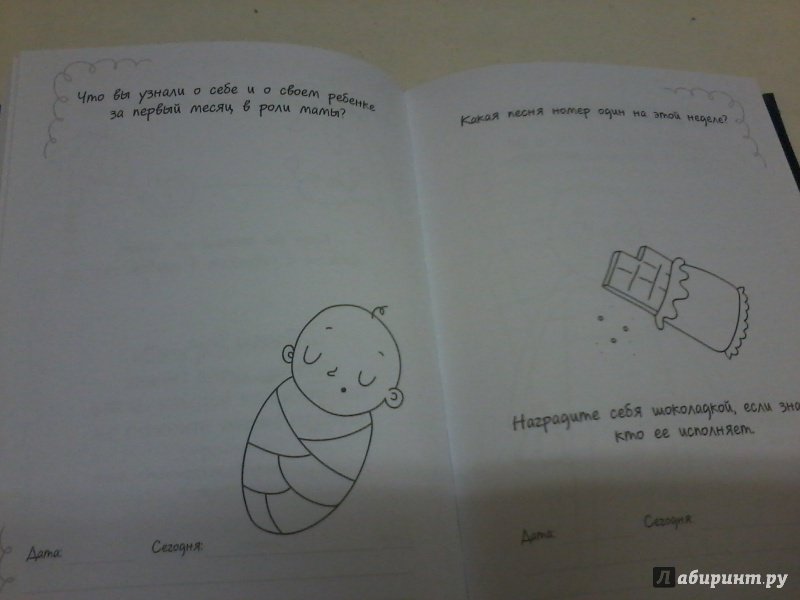 Что вы узнали о себе и о своем ребенке
за первый месяц в роли мамы?
Дата:
Сегодня:
Какая песня номер один на этой неделе?
Наградите себя шоколадкой, если зна
кто ее исполняет.
Дата:
Сегодня:
Лабиринт.ру